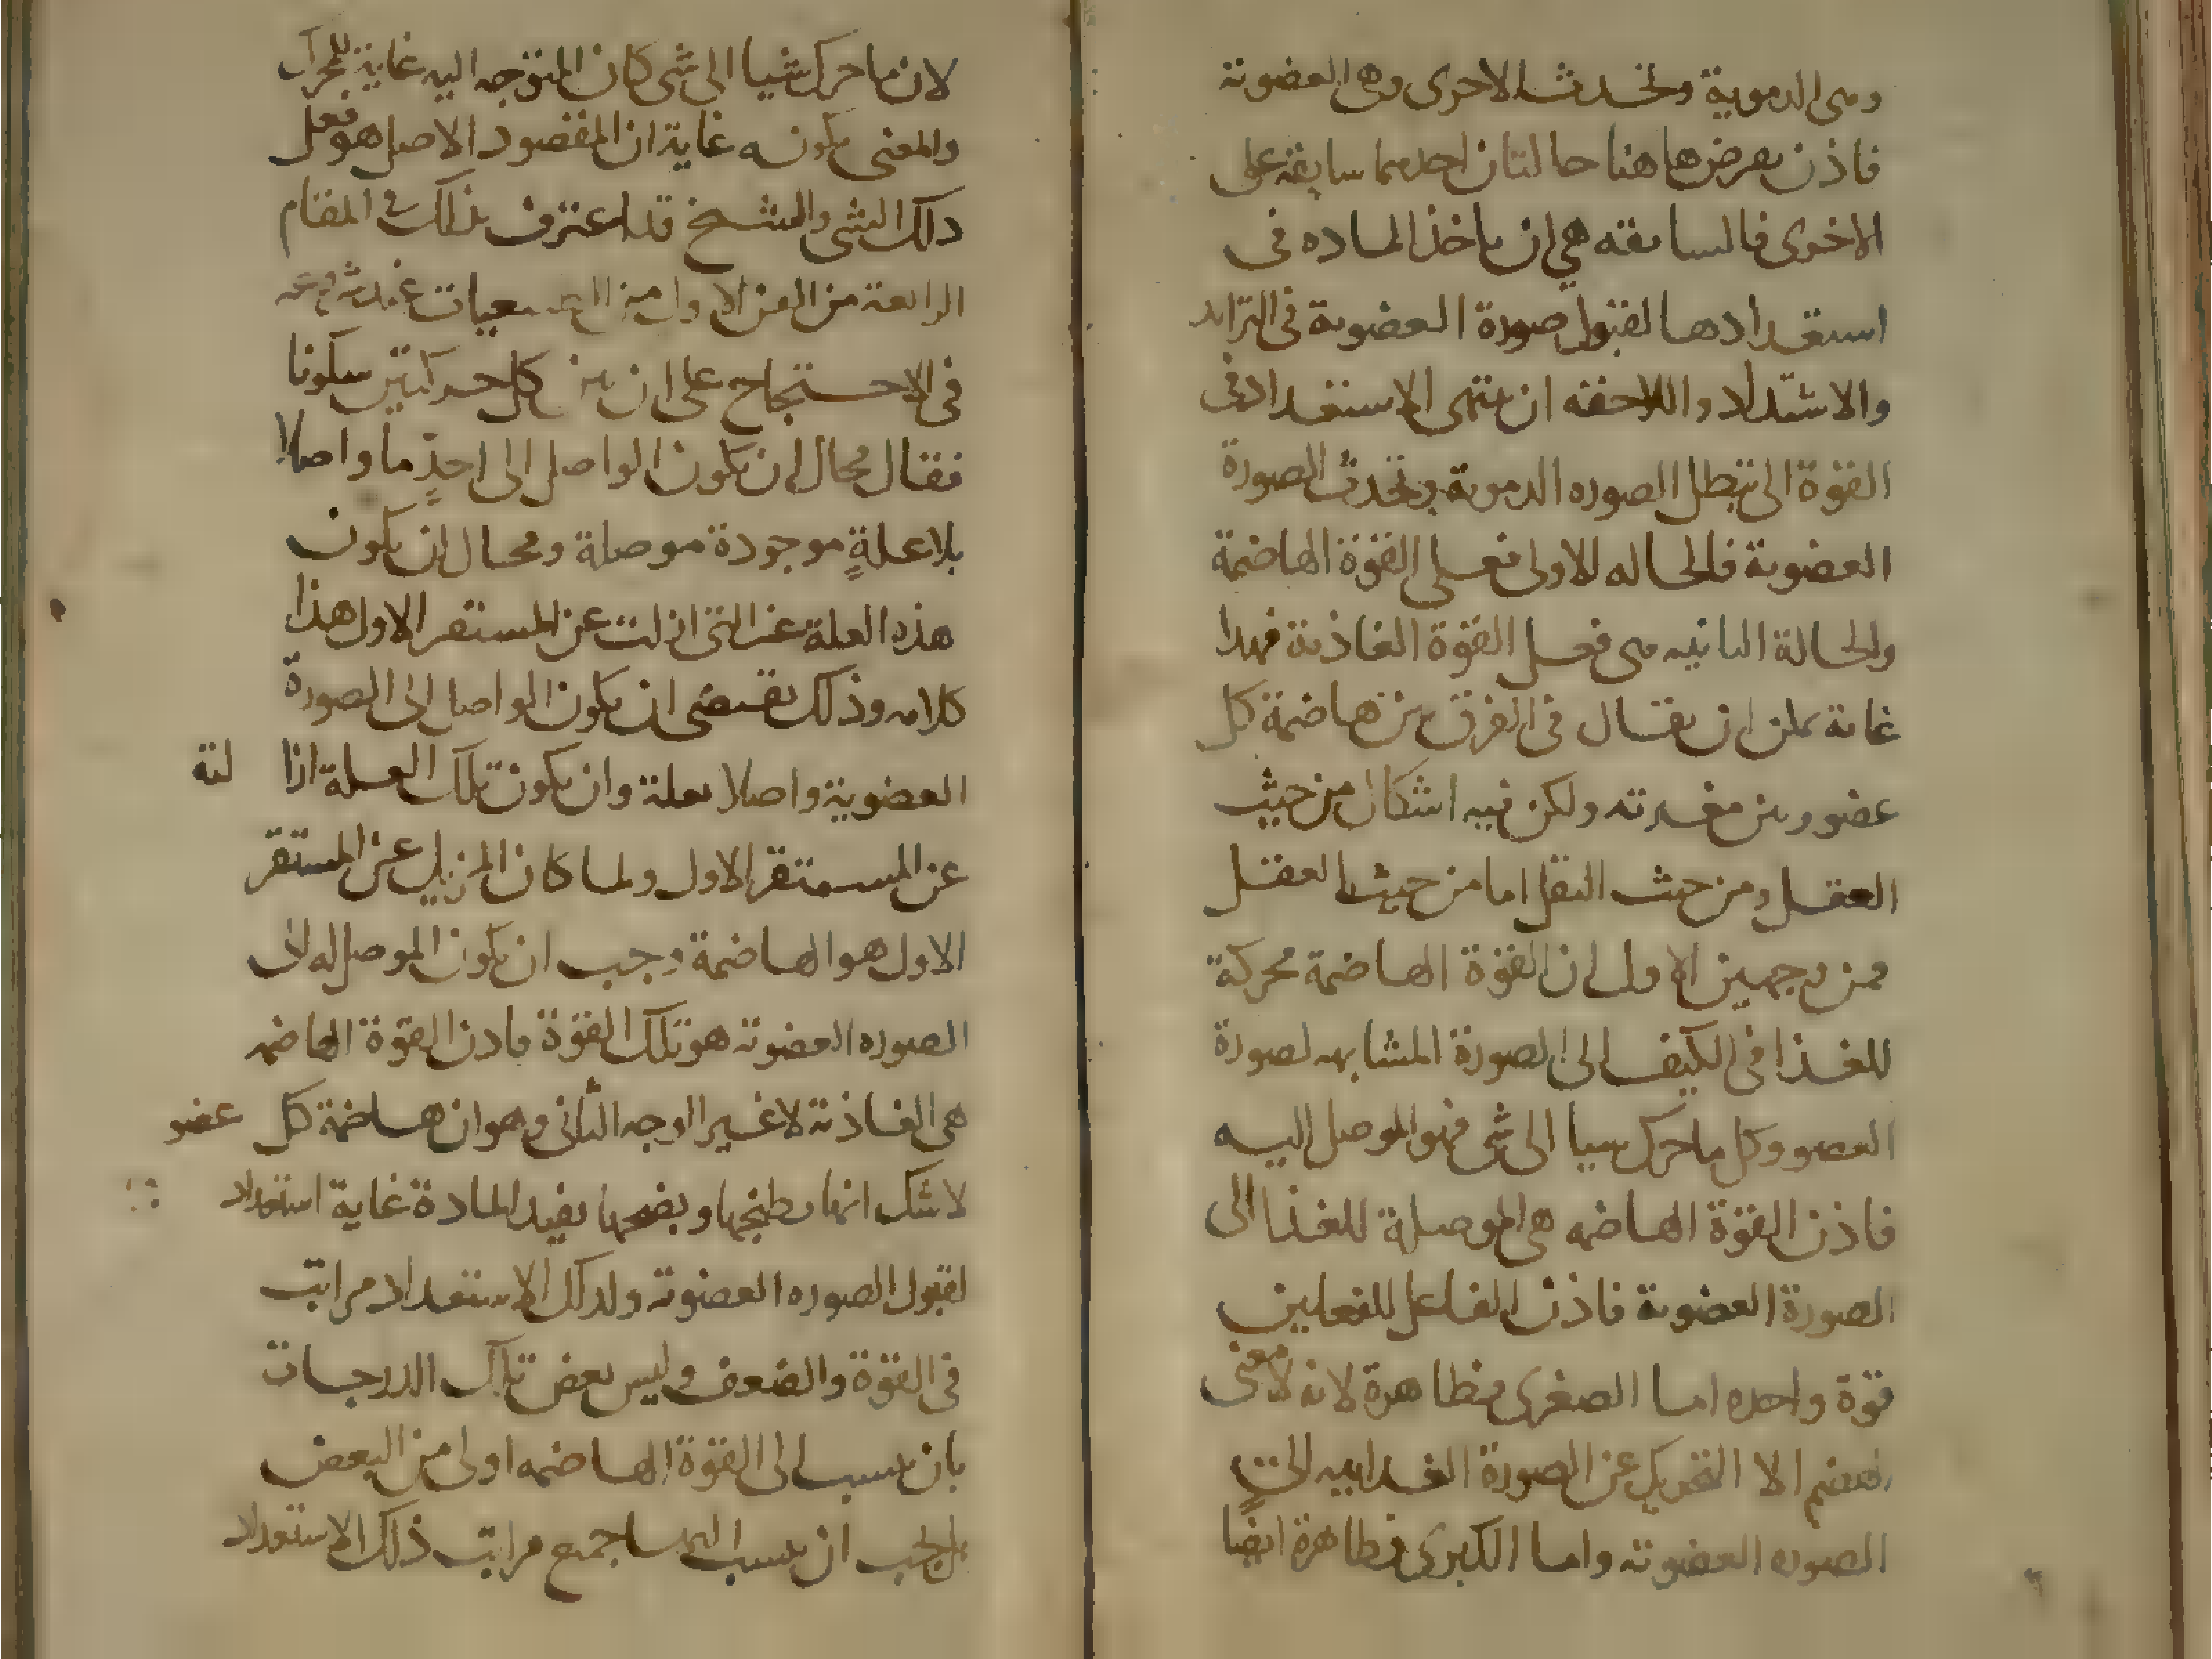 وهى الدموية وتحدث الاخرى وهى العضوية
فاذن يعرض هاهنا حالتان احديهما سابقة على
الاخرى فالسابقه هي ان ياخذ الماده فى
استعدادها لقبول صورة العضوية فى التزايد
والاشتداد واللاحقه ان ينتهى الاستعداد فى
القوة الى تبطل الصوره الدموية وتحدث الصورة
العضوية فالحاله الاولى فعل القوة الهاضمة
والحالة الثانيه هى فعل القوة الغاذية فهذا
غاية يمكن ان يقال فى الفرق بين هاضمة كل
عضو وبين مغيرته ولكن فيه اشكال من حيث
العقل ومن حيث النقل اما من حيث العقل
فمن وجهين الاول ان القوة الهاضمة محركة
للغذا فى الكيف الى الصورة المشابهه لصورة
العضو وكل ما حرك شيا الى شى فهو الموصل اليه
فاذن القوة الهاضمه هى الموصلة للغذا الى
الصورة العضوية فاذن الفاعل للفعلين
قوة واحده اما الصغرى فظاهرة لانه لا معنى
للهضم الا التحريك عن الصورة الغذاييه الى
الصوره العضويه واما الكبرى فظاهرة ايضا
لان ما حرك شيا الى شى كان المتوجه اليه غاية للمحرك
والمعنى بكونه غاية ان المقصود الاصل هو فعل
ذلك الشى والشيخ قد اعترف بذلك فى المقام
الرابعة من الفن الاول من الطبيعيات عند شروعه
فى الاحتجاج على ان بين كل حركتين سكونا
فقال محال ان يكون الواصل الى احدٍ ما واصلا
بلا علةٍ موجودة موصلة ومحال ان يكون
هذه العلة غير التى ازلت عن المستقر الاول هذا
كلامه وذلك يقتضى ان يكون الواصل الى الصورة
العضوية واصلا بعلة وان يكون تلك العلة ازا لته
عن المستقر الاول ولما كان المزيل عن المستقر
الاول هو الهاضمة وجب ان يكون الموصل له الى
الصوره العضوية هو تلك القوة فاذن القوة الهاضمه
هى الغاذية لا غير الوجه الثانى وهو ان هاضمة كل عضو
لا شك انها بطبخها وبنضجها يفيد المادة غاية استعداد
لقبول الصوره العضوية ولذلك الاستعداد مراتب
فى القوة والضعف وليس بعض تلك الدرجات
بان ينسب الى القوة الهاضمه اولى من البعض
بل يجب ان ينسب اليها جميع مراتب ذلك الاستعداد